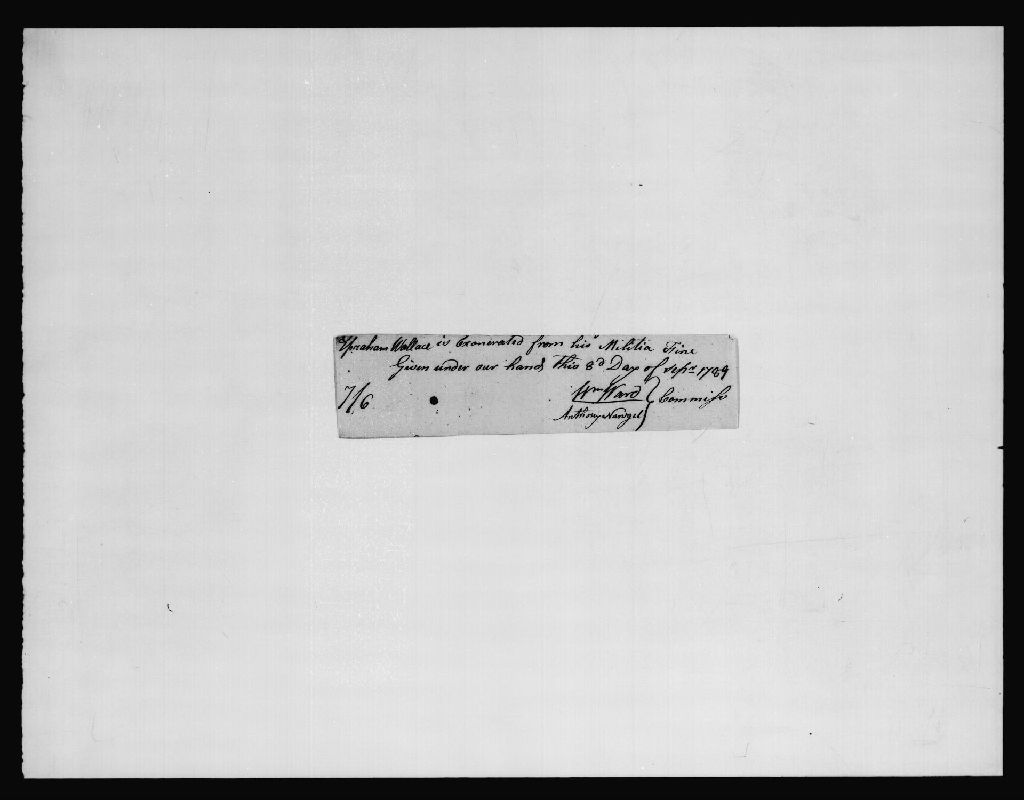 Abraham Wallace is Exonerated from his Militia Fine
Given under our hands this 8d Day of Sepr 1784
7/6
Wm Ward
Anthony Nawgel
Commiss